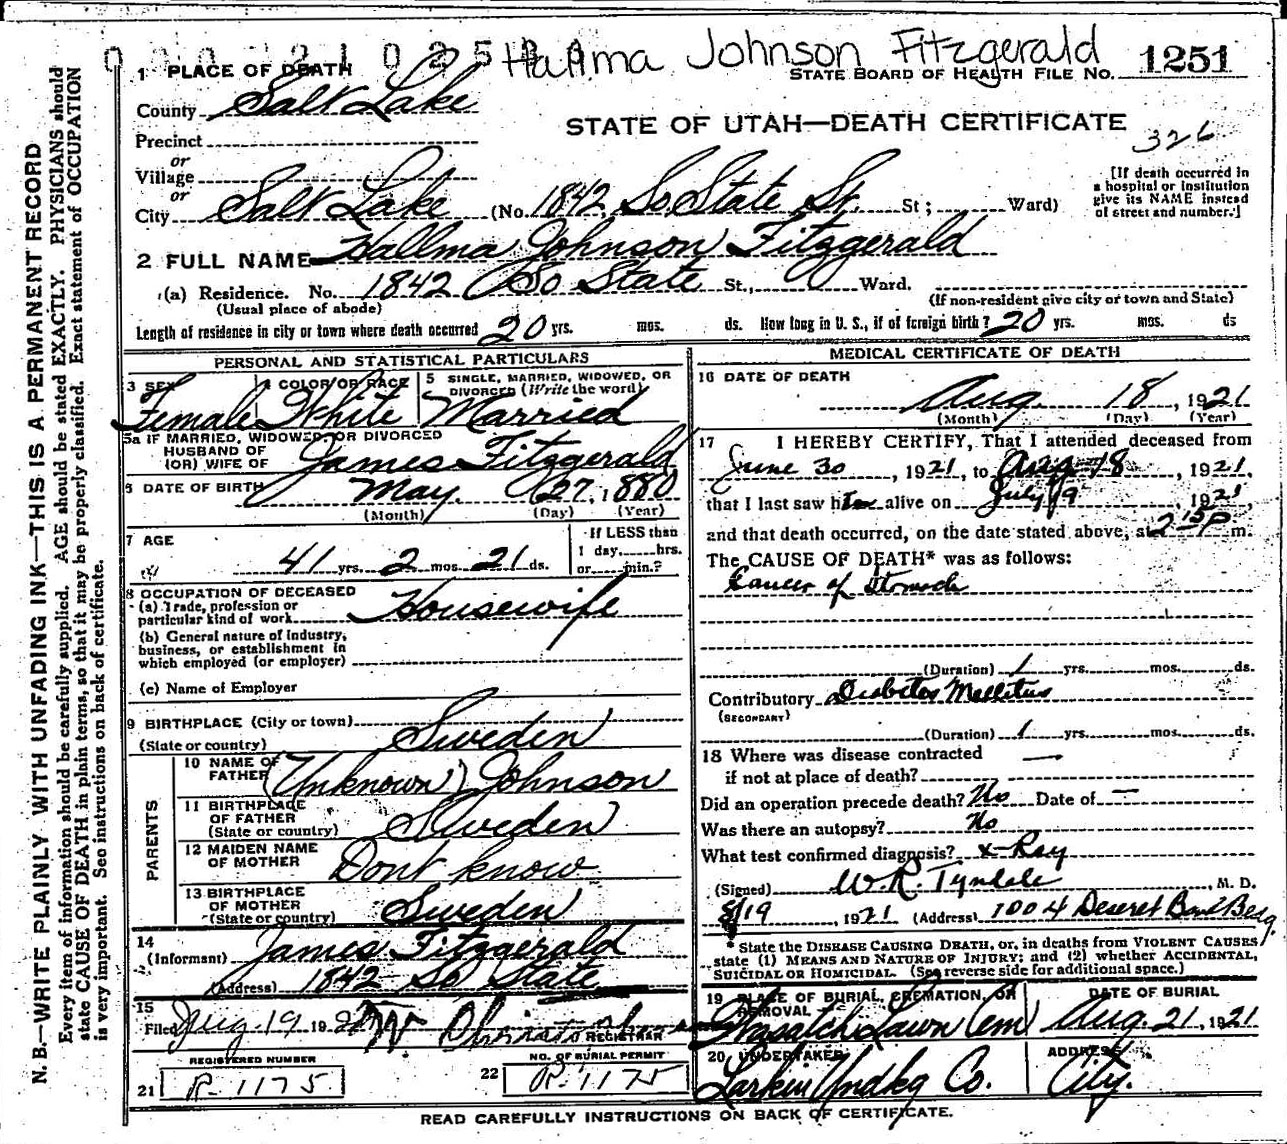 0 0 0 2 1 0 2 5 0 0
Hallma Johnson Fitzgerald
STATE BOARD OF HEALTH FILE NO. 1251
1 PLACE OF DEATH
County Salt Lake
STATE OF UTAH—DEATH CERTIFICATE
326
Precinct
or
Village
or
City Salt Lake (No. 1842 So. State St. St; Ward)
[If death occurred in
a hospital or institution
give its NAME instead
of street and number.]
2 FULL NAME Hallma Johnson Fitzgerald
(a) Residence. No. 1842 So State St., Ward.
(Usual place of abode) (If non-resident give city or town and State)
Length of residence in city or town where death occurred 20 yrs. mos. ds. How long in U. S., if of foreign birth? 20 yrs. mos. ds
PERSONAL AND STATISTICAL PARTICULARS
3 SEX 4 COLOR OR RACE 5 SINGLE, MARRIED, WIDOWED, OR
DIVORCED (Write the word)
Female White Married
5a IF MARRIED, WIDOWED, OR DIVORCED
HUSBAND OF
(OR) WIFE OF James Fitzgerald
6 DATE OF BIRTH May 27, 1880
(Month) (Day) (Year)
7 AGE
41 yrs. 2 mos. 21 ds.
If LESS than
1 day, hrs.
or min.?
8 OCCUPATION OF DECEASED
(a) Trade, profession or
particular kind of work Housewife
(b) General nature of industry,
business, or establishment in
which employed (or employer)
(c) Name of Employer
9 BIRTHPLACE (City or town)
(State or country) Sweden
PARENTS
10 NAME OF
FATHER (Unknown) Johnson
11 BIRTHPLACE
OF FATHER
(State or country) Sweden
12 MAIDEN NAME
OF MOTHER Dont know
13 BIRTHPLACE
OF MOTHER
(State or country) Sweden
14
(Informant) James Fitzgerald
(Address) 1842 So State
15
Filed Aug. 19 19
REGISTRAR
REGISTERED NUMBER
21 R-1175
NO. OF BURIAL PERMIT
22 R-1175
MEDICAL CERTIFICATE OF DEATH
16 DATE OF DEATH
Aug. 18, 1921
(Month) (Day) (Year)
17 I HEREBY CERTIFY, That I attended deceased from
June 30, 1921, to Aug 18, 1921,
that I last saw her alive on July 19 1921,
and that death occurred, on the date stated above, at 2 15 P m.
The CAUSE OF DEATH* was as follows:
Cancer of Stomach
(Duration) 1 yrs. mos. ds.
Contributory Diabetes Mellitus
(SECONDARY)
(Duration) 1 yrs. mos. ds.
18 Where was disease contracted
if not at place of death? —
Did an operation precede death? No Date of —
Was there an autopsy? No
What test confirmed diagnosis? x-Ray
(Signed) W.R. Tyndale, M. D.
8/19 1921 (Address) 1004 Deseret Bank Bldg.
* State the DISEASE CAUSING DEATH, or, in deaths from VIOLENT CAUSES,
state (1) MEANS AND NATURE OF INJURY; and (2) whether ACCIDENTAL,
SUICIDAL OR HOMICIDAL. (See reverse side for additional space.)
19 PLACE OF BURIAL, CREMATION, OR
REMOVAL
Wasatch Lawn Cem
DATE OF BURIAL
Aug. 21, 1921
20 UNDERTAKER
Larkin Undkg Co.
ADDRESS
City.
READ CAREFULLY INSTRUCTIONS ON BACK OF CERTIFICATE.
N. B.—WRITE PLAINLY WITH UNFADING INK—THIS IS A PERMANENT RECORD
Every item of information should be carefully supplied. AGE should be stated EXACTLY. PHYSICIANS should
state CAUSE OF DEATH in plain terms, so that it may be properly classified. Exact statement of OCCUPATION
is very important. See instructions on back of certificate.